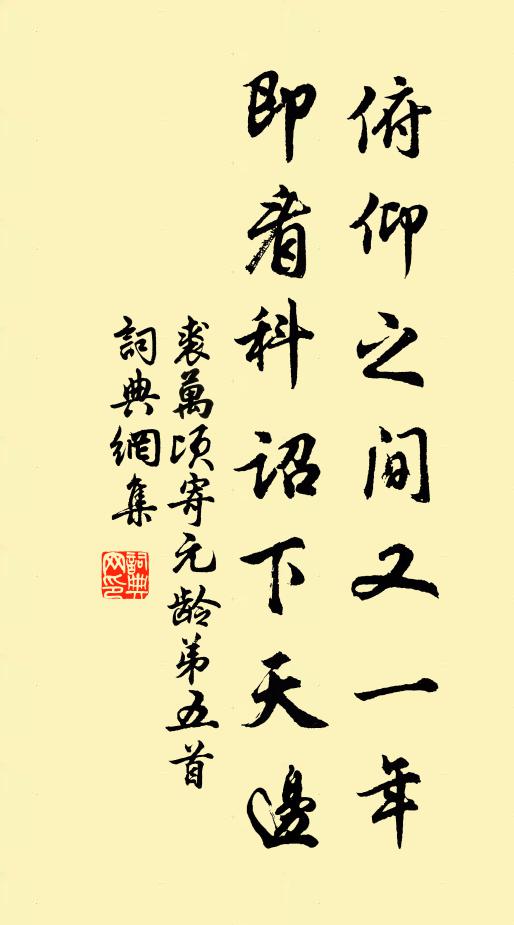 俯仰之间又一年
即看科詔下天邊
裘萬頃寄元龄第五首
詞典網集
詞典網印